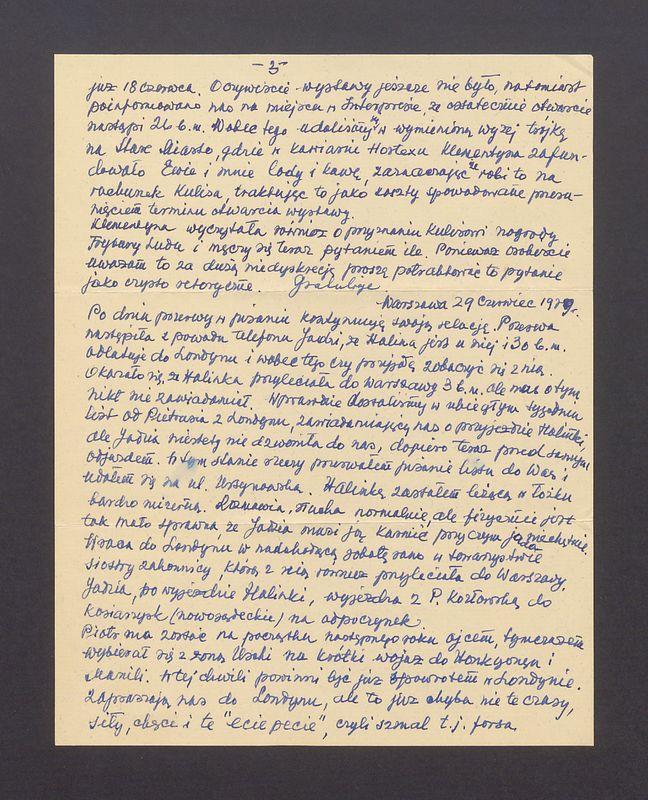 - 3 -
już 18 czerwca. Oczywiście wystawy jeszcze nie było, natomiast
poinformowano nas na miejscu w Interpresie, że ostatecznie otwarcie
nastąpi 26 b.m. Wobec tego udaliśmy się w wymienioną wyżej trójkę
na Stare Miasto, gdzie w kawiarni Hortexu Klementyna zafun-
dowała Ewie i mnie lody i kawę, zaznaczając że robi to na
rachunek Kulisa, traktując to jako koszty spowodowane przesu-
nięciem terminu otwarcia wystawy.
Klementyna wyczytała również o przyznaniu Kulisowi nagrody
Trybuny Ludu i męczy się teraz pytaniem ile. Ponieważ osobiście
uważam to za dużą niedyskrecję, proszę potraktować to pytanie
jako czysto retoryczne. Gratuluję.
Warszawa 29 czerwiec 1979r.
Po dniu przerwy w pisaniu kontynuuję swoją relację. Przerwa
nastąpiła z powodu telefonu Jadzi, że Halina jest u niej i 30 b.m.
odlatuje do Londynu i wobec tego czy przyjdę zobaczyć się z nią.
Okazało się, że Halinka przyleciała do Warszawy 3 b.m. ale nas o tym
nikt nie zawiadamiał. Wprawdzie dostaliśmy w ubiegłym tygodniu
list od Pietrasia z Londynu, zawiadamiający nas o przyjeździe Halinki,
ale Jadzia niestety nie dzwoniła do nas, dopiero teraz przed samym
odjazdem. W tym stanie rzeczy przerwałem pisanie listu do Was i
udałem się na ul. Ursynowską. Halinkę zastałem leżącą w łóżku
bardzo mizerną. Rozmawia, słucha normalnie, ale fizycznie jest
tak mało sprawna, że Jadzia musi ją karmić przy czym jada niechętnie.
Wraca do Londynu w nadchodzącą sobotę rano w towarzystwie
siostry zakonnicy, która z nią również przyleciała do Warszawy.
Jadzia, po wyjeździe Halinki, wyjeżdża z P. Kozłowską do
Kosarzysk (nowosądeckie) na odpoczynek.
Piotr ma zostać na początku następnego roku ojcem, tymczasem
wybierał się z żoną Uschi na krótki wojaż do Honkongu i
Manili. W tej chwili powinni być już z powrotem w Londynie.
Zapraszają nas do Londynu, ale to już chyba nie te czasy,
siły, chęci i te "ecie pecie", czyli szmal t.j. forsa.